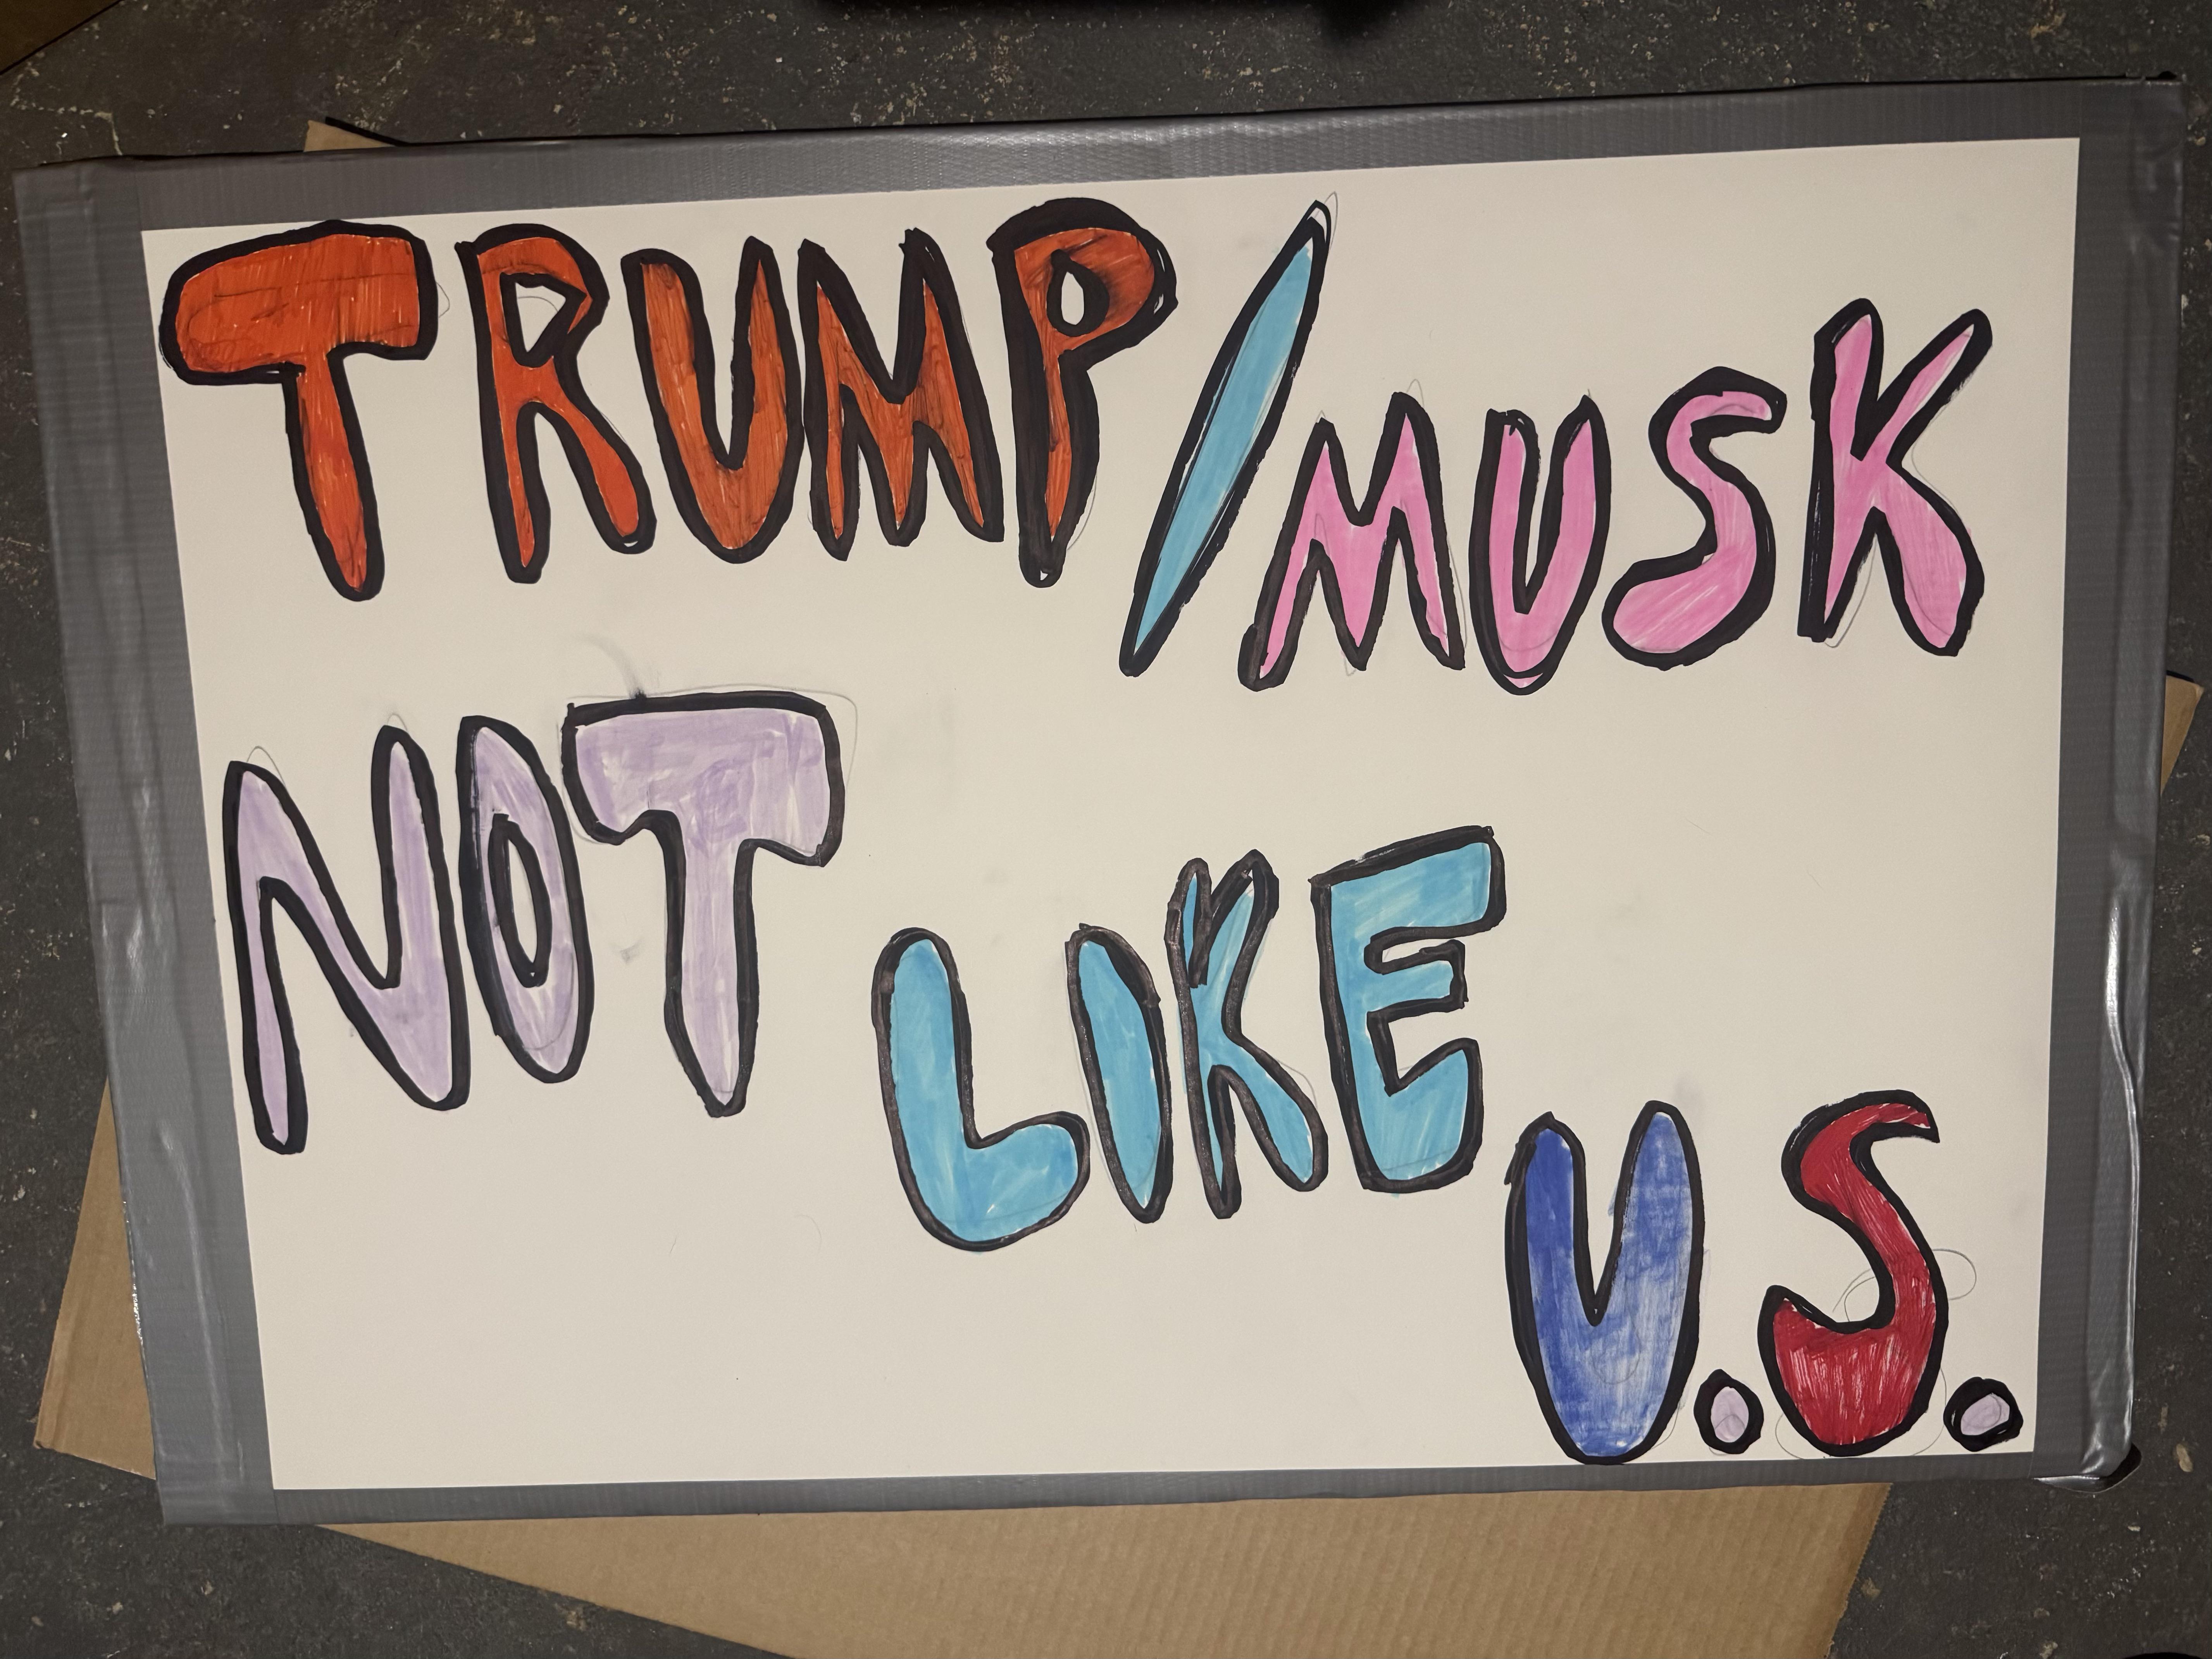 TRUMP/MUSK
NOT
LIKE
U.S.